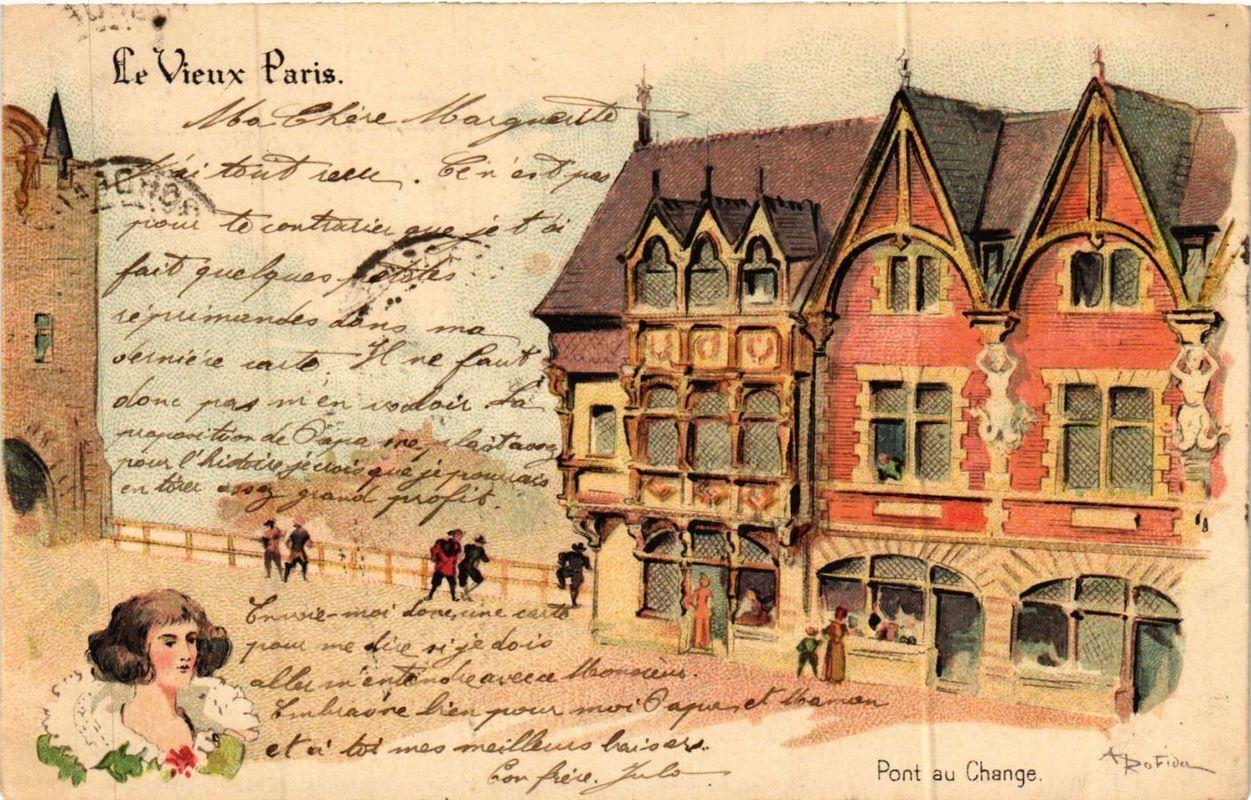 Le Vieux Paris.
Ma Chère Marguerite
J'ai tout reçu. Ce n'est pas
pour te contrarier que je t'ai
fait quelques petites
réprimandes dans ma
dernière carte. Il ne faut
donc pas m'en vouloir. La
proposition de Papa me plait assez
pour l'histoire je crois que je pourrais
en tirer assez grand profit.
Envoie-moi donc, une carte
pour me dire si je dois
aller m'entendre avec ce Monsieur.
Embrasse bien pour moi Papa et Maman
et à toi mes meilleurs baisers.
Ton frère. Julo
Pont au Change.
A Robida